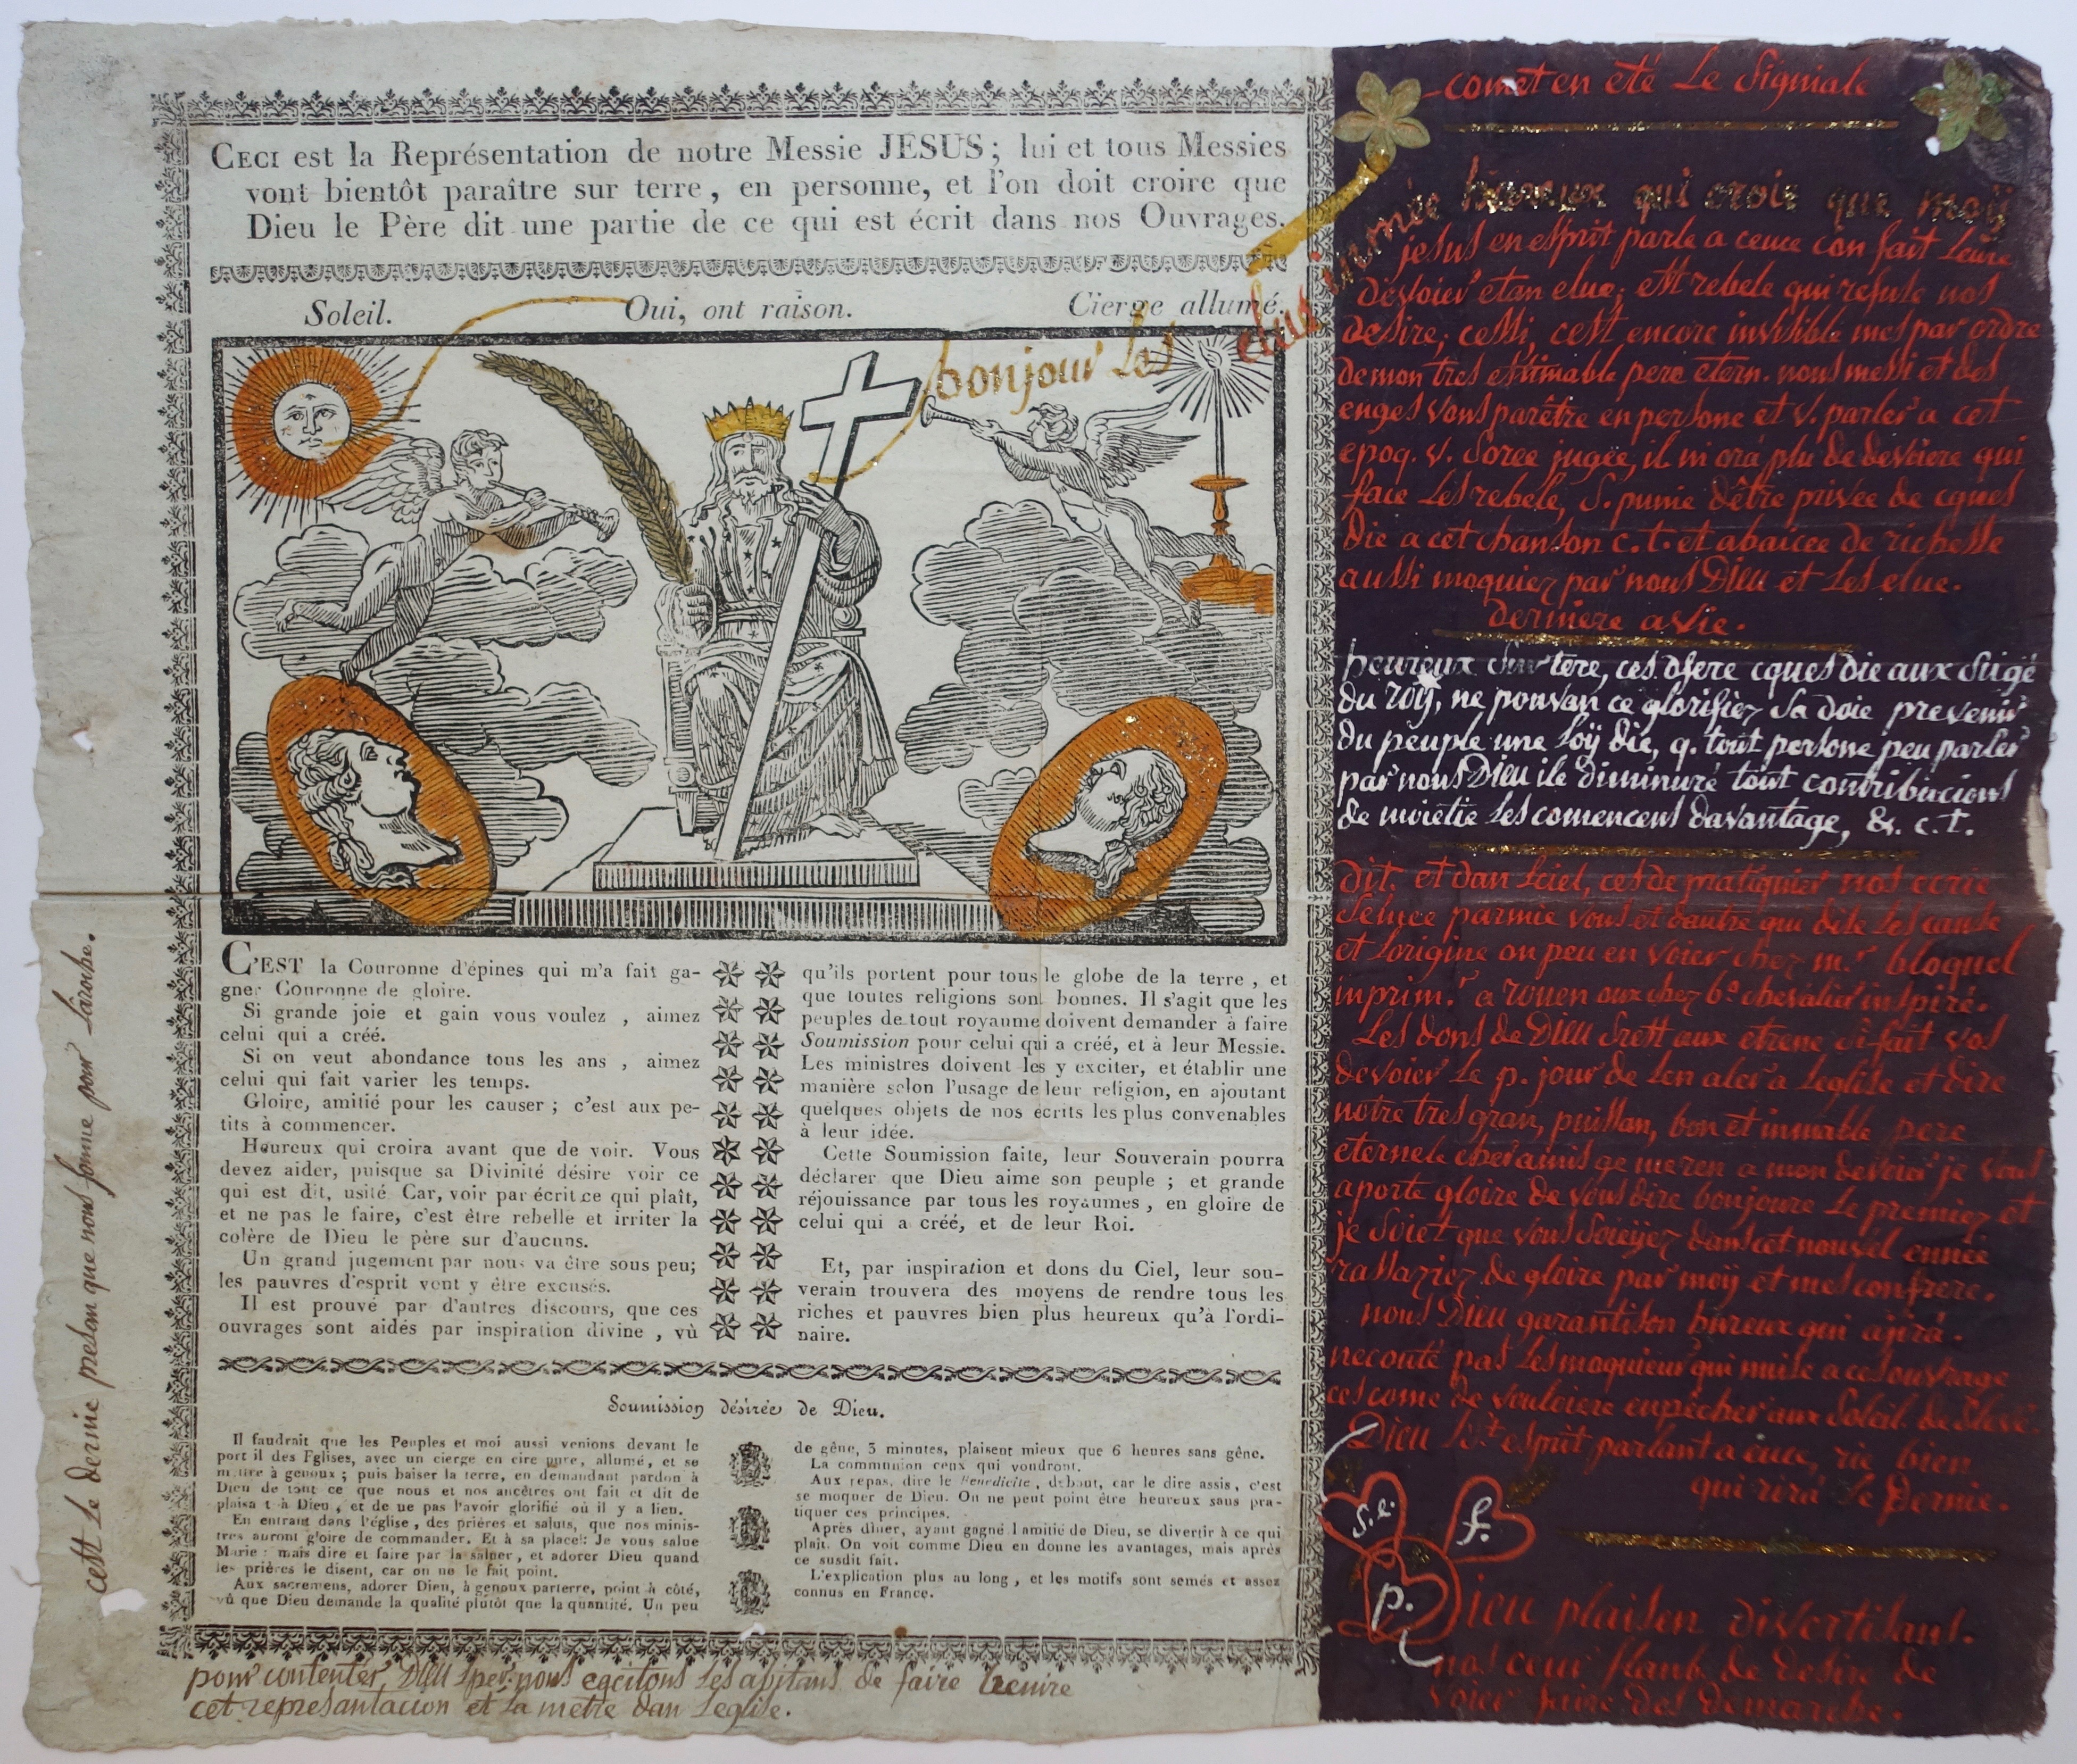 CECI est la Représentation de notre Messie JESUS; lui et tous Messies
vont bientôt paraître sur terre, en personne, et l'on doit croire que
Dieu le Père dit une partie de ce qui est écrit dans nos Ouvrages.
Soleil. Oui, ont raison. Cierge allumé.
bonjour les elus
C'EST la Couronne d'épines qui m'a fait ga-
gner Couronne de gloire.
Si grande joie et gain vous voulez, aimez
celui qui a créé.
Si on veut abondance tous les ans, aimez
celui qui fait varier les temps.
Gloire, amitié pour les causer; c'est aux pe-
tits à commencer.
Heureux qui croira avant que de voir. Vous
devez aider, puisque sa Divinité désire voir ce
qui est dit, usité. Car, voir par écrit ce qui plaît,
et ne pas le faire, c'est être rebelle et irriter la
colère de Dieu le père sur d'aucuns.
Un grand jugement par nous va être sous peu;
les pauvres d'esprit vont y être excusés.
Il est prouvé par d'autres discours, que ces
ouvrages sont aidés par inspiration divine, vû
qu'ils portent pour tous le globe de la terre, et
que toutes religions sont bonnes. Il s'agit que les
peuples de tout royaume doivent demander à faire
Soumission pour celui qui a créé, et à leur Messie.
Les ministres doivent les y exciter, et établir une
manière selon l'usage de leur religion, en ajoutant
quelques objets de nos écrits les plus convenables
à leur idée.
Cette Soumission faite, leur Souverain pourra
déclarer que Dieu aime son peuple; et grande
réjouissance par tous les royaumes, en gloire de
celui qui a créé, et de leur Roi.
Et, par inspiration et dons du Ciel, leur sou-
verain trouvera des moyens de rendre tous les
riches et pauvres bien plus heureux qu'à l'ordi-
naire.
Soumission désirée de Dieu.
Il faudrait que les Peuples et moi aussi venions devant le
port il des Eglises, avec un cierge en cire pure, allumé, et se
mettre à genoux; puis baiser la terre, en demandant pardon à
Dieu de tout ce que nous et nos ancêtres ont fait et dit de
plaisa t à Dieu, et de ne pas l'avoir glorifié où il y a lieu.
En entrant dans l'église, des prières et saluts, que nos minis-
tres auront gloire de commander. Et à sa place: Je vous salue
Marie: mais dire et faire par la saluer, et adorer Dieu quand
les prières le disent, car on ne le fait point.
Aux sacremens, adorer Dieu, à genoux parterre, point à côté,
vû que Dieu demande la qualité plutôt que la quantité. Un peu
de gêne, 3 minutes, plaisent mieux que 6 heures sans gêne.
La communion ceux qui voudront.
Aux repas, dire le Benedicite, debout, car le dire assis, c'est
se moquer de Dieu. On ne peut point être heureux sans pra-
tiquer ces principes.
Après dîner, ayant gagné l'amitié de Dieu, se divertir à ce qui
plaît. On voit comme Dieu en donne les avantages, mais après
ce susdit fait.
L'explication plus au long, et les motifs sont semés et assez
connus en France.
pour contenter Dieu l per. nous egcitons les abitans de faire benire
cet represantacion et la metre dan leglise.
cest le dernie presan que nous fonme pour laroche.
comet en été Le Signiale
hureux qui crois que moÿ
jesus en esprit parle a ceuce con fait leure
devoier etan elue; ett rebele qui refuse nos
desire; cessi, cest encore invisible mes par ordre
demon tres estimable pere etern. nous messi et des
enges vons parêtre en persone et v. parler a cet
epoq. v. soree jugée, il ni ora plu de devoiere qui
face les rebele, s. punie dêtre privée de cques
die a cet chanson c.t. et abaicee de richesse
aussi moquiez par nous Dieu et les elue.
derniere avie.
heureux sur tere, ces dfere cques die aux suigé
du roÿ, ne pouvan ce glorifiez sa doie prevenir
du peuple une loÿ die, q. tout persone peu parler
par nous Dieu ile diminuré tout contribucions
de moietie les comencens davantage, &. c.t.
dit. et dan lciel, ces de pratiquier nos ecrie
seluce parmie vous et dautre qui dite les cause
et lorigine on peu en voier chez m.r bloquel
inprim.r a rouen oux chez b.e chevalier inspiré.
Les dons de Dieu srett aux etrene si fait vos
devoier le p. jour de len aler a leglise et dire
notre tres gran, puissan, bon et inmable pere
eternele cher amis ge me ren a mon devoier je vous
aporte gloire de vous dire bonjoure le premiez et
je soiet que vous soieÿez dans cet nouvel ennée
rassaziez de gloire par moÿ et mes confrere.
nous Dieu garantison hureux qui ajira.
necouté pas les moquieur qui nuise a ces ouvrage
ces come de vouloiere enpêcher aux soleil de slevé.
Dieu s.t esprit parlant a ceuce, rie bien
qui rira le dernie.
s.e. f.
p.
Dieu plaisen divertisant.
nos ceur flanb de desire de
voier faire des demarche.